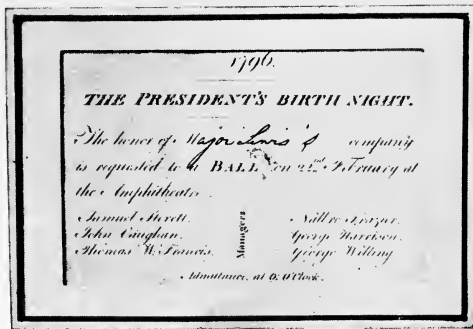 1796.
THE PRESIDENT'S BIRTH NIGHT.
The honor of Major Lewis's company
is requested to a BALL on 22nd February at
the Amphitheatre.
Samuel Sterett.
John Vaughan.
Thomas W. Francis.
Managers
Nalbro Frazier.
George Harrison.
George Willing
Admittance, at 6. O'Clock.